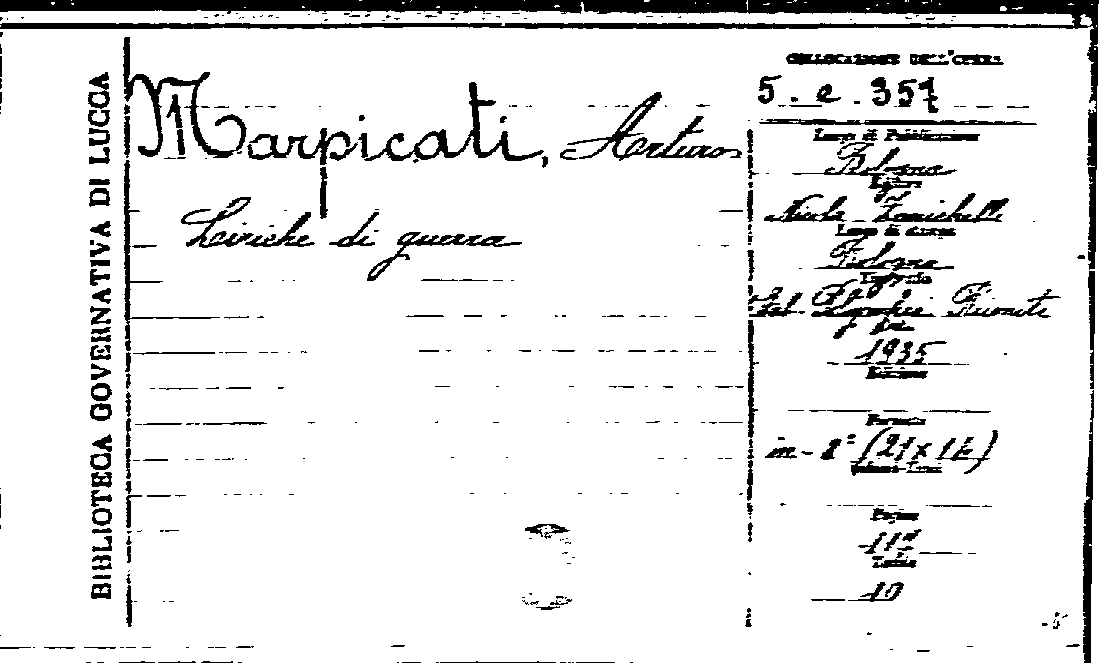 BIBLIOTECA GOVERNATIVA DI LUCCA
Marpicati, Arturo
Liriche di guerra
COLLOCAZIONE DELL'OPERA
5. e. 357
Luogo di Pubblicazione
Bologna
Editore
Nicola Zanichelli
Luogo di stampa
Bologna
Tipografia
Stab. Riunite
1935
Edizione
Formato
in-8°
Pagine
Tavole
10